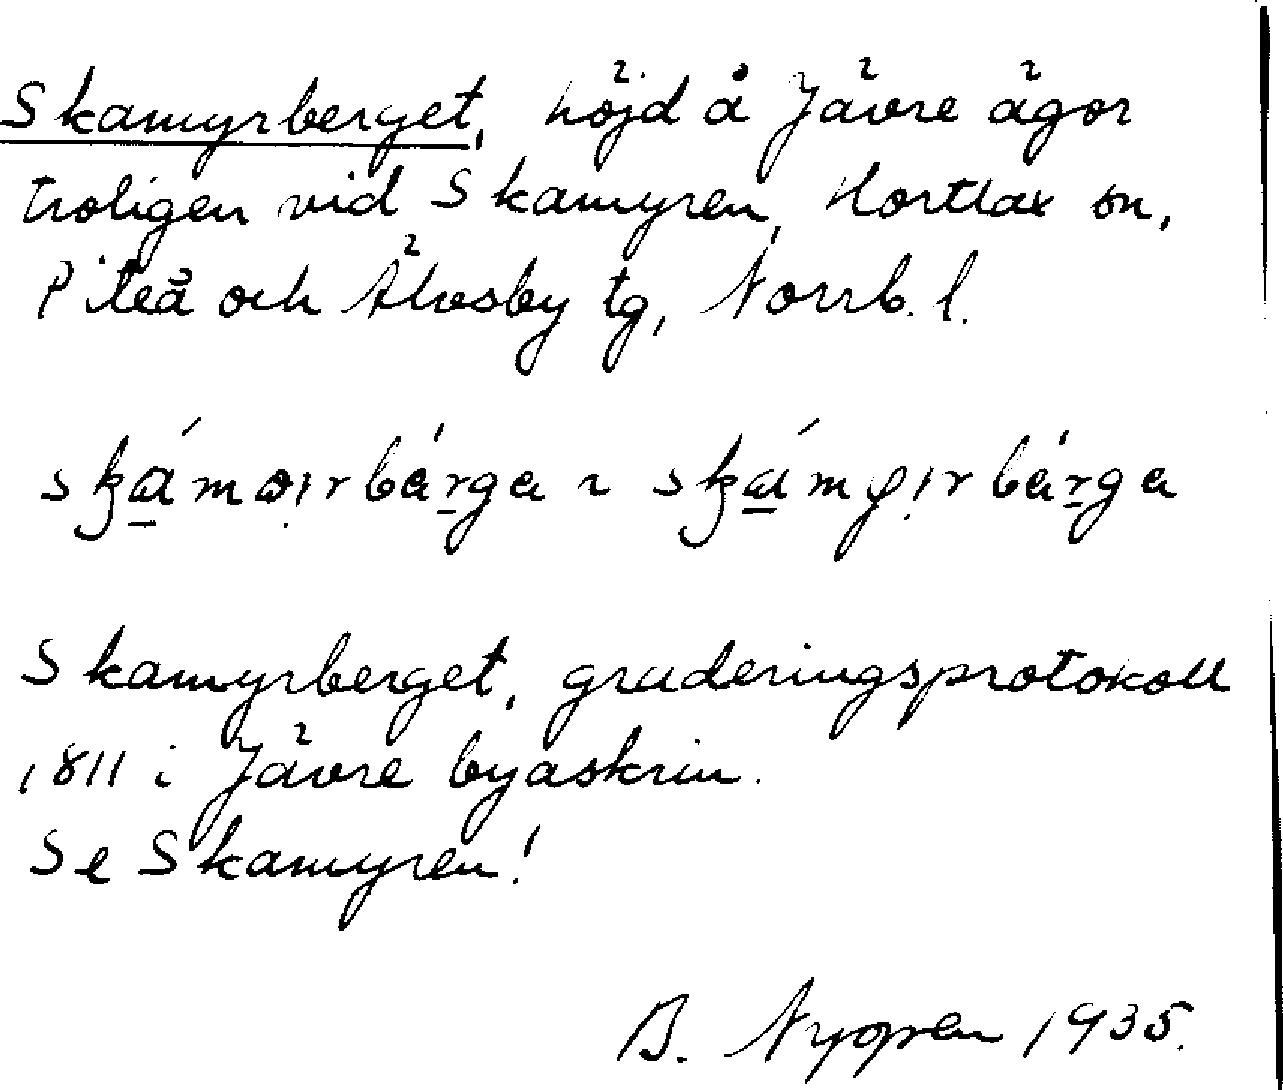 Skamyrberget, höjd å Jävre ägor
troligen vid Skamyren, Hortlax sn,
Piteå och Älvsby tg, Norrb. l.
Skamyrberget, graderingsprotokoll
1811 i Jävre byaskrin.
Se Skamyren!
B. Nygren 1935.